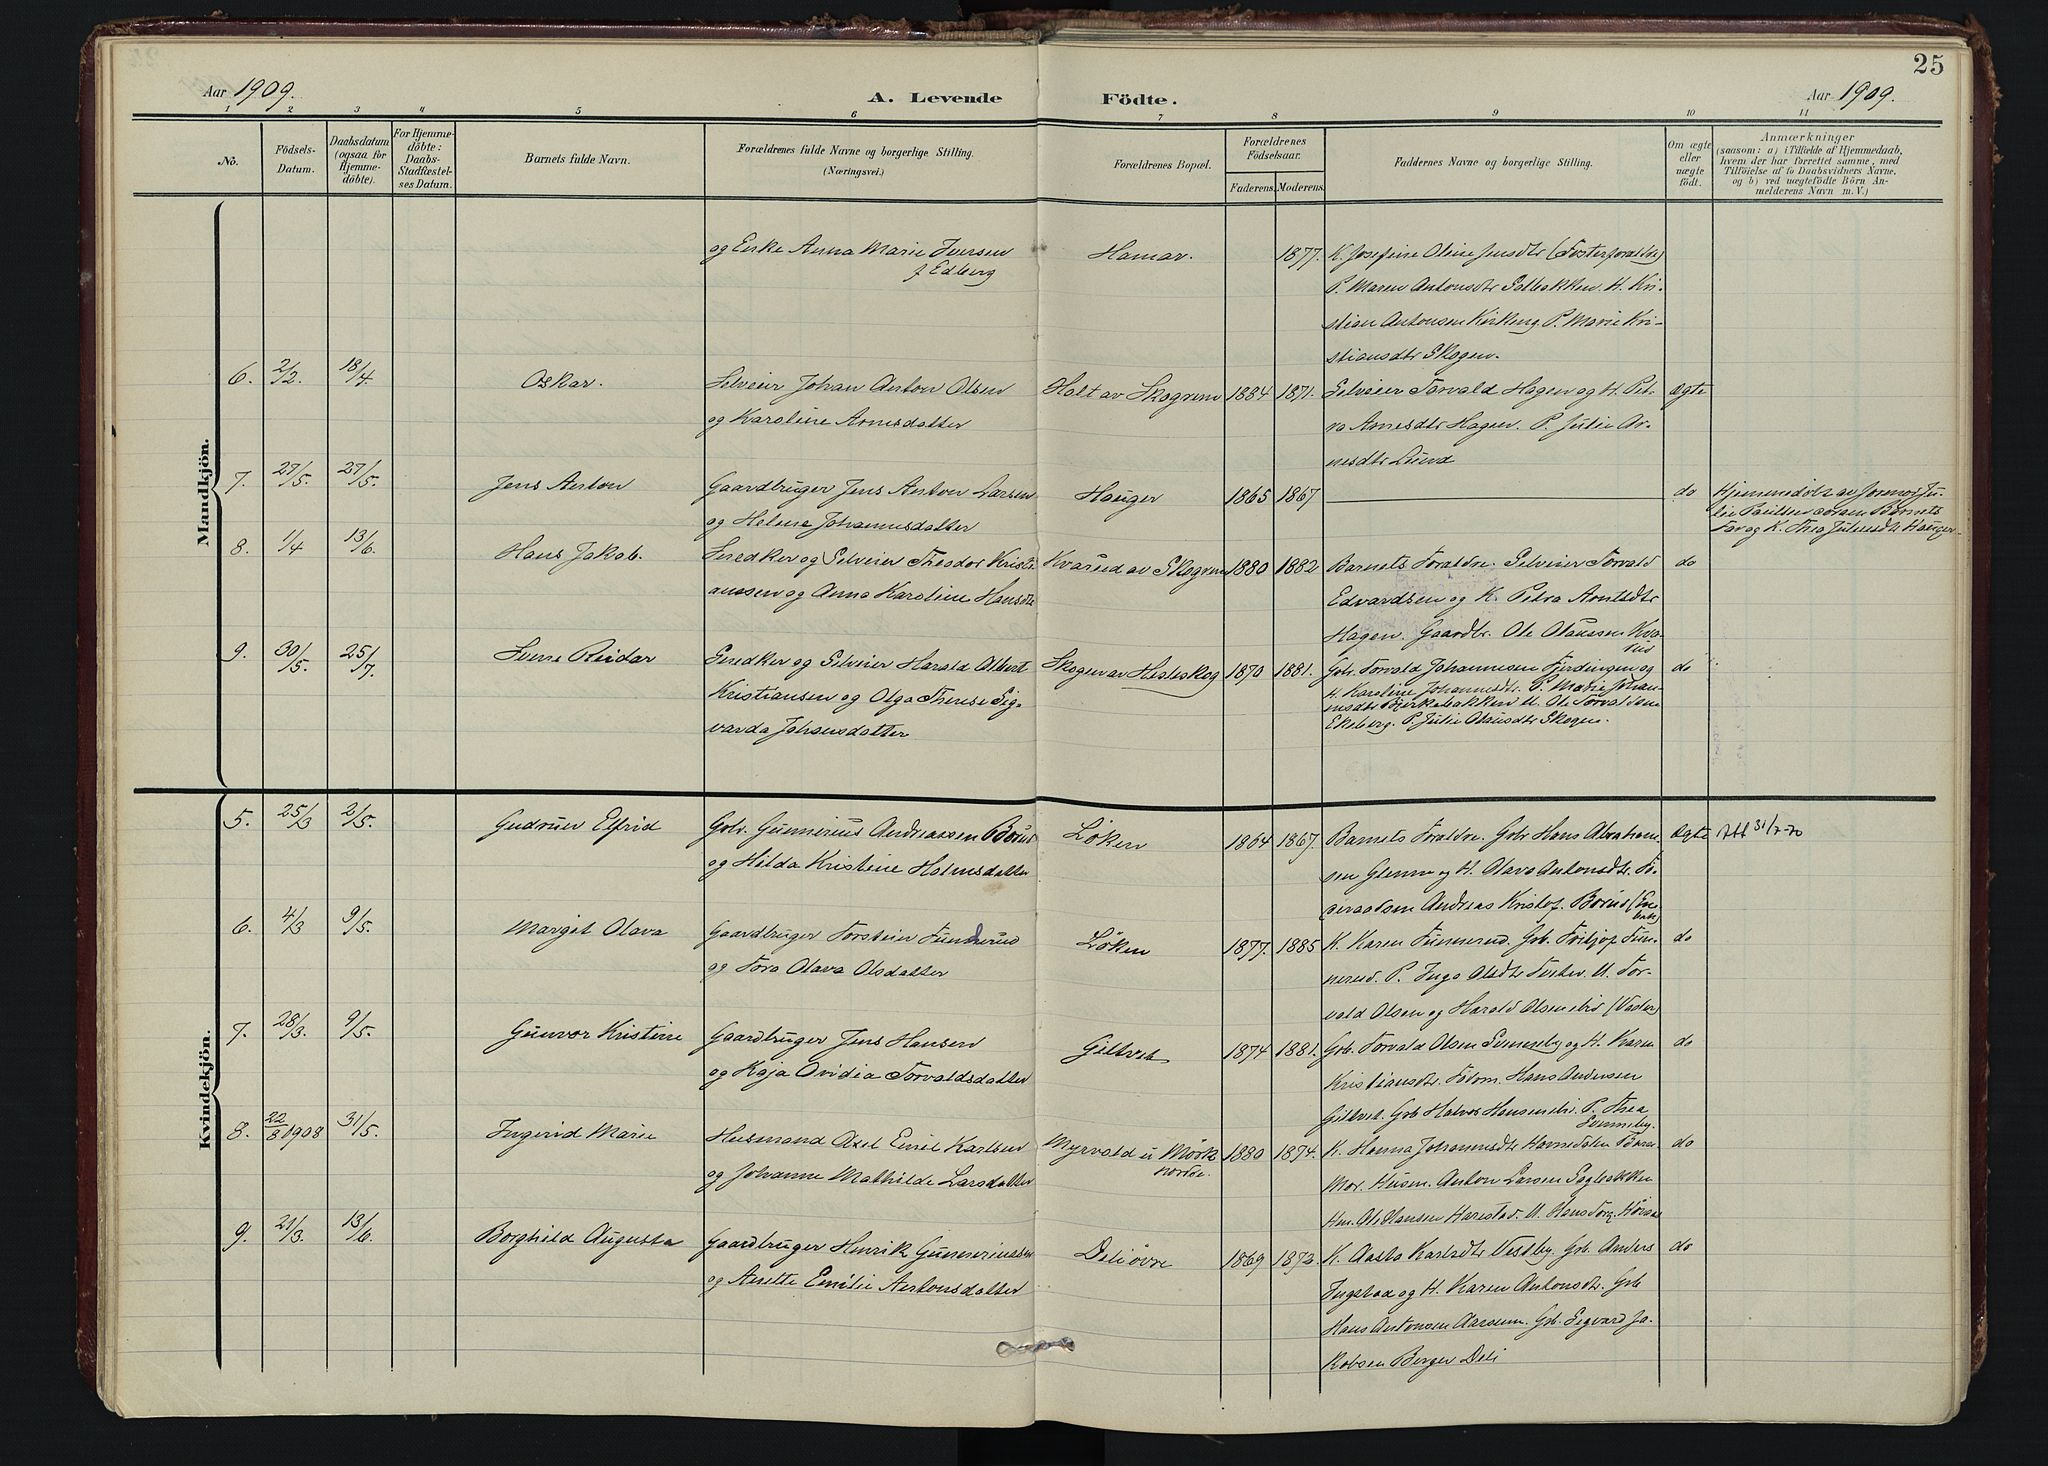 25
Aar 1909.
A. Levende Födte.
Aar 1909.
1 2 3 4 5 6 7 8 9 10 11
No.
Födsels-
Datum.
Daabsdatum
(ogsaa for
Hjemme-
döbte).
For Hjemme-
döbte:
Daabs-
Stadfæstel-
ses Datum.
Barnets fulde Navn.
Forældrenes fulde Navne og borgerlige Stilling.
(Næringsvei.)
Forældrenes Bopæl.
Forældrenes
Födselsaar.
Faderens. Moderens.
Faddernes Navne og borgerlige Stilling.
Om ægte
eller
uægte
födt.
Anmærkninger
(saasom: a) i Tilfælde af Hjemmedaab,
hvem der har forrettet samme, med
Tilföielse af to Daabsvidners Navne,
og b) ved uægtefödte Börn An-
melderens Navn m. V.)
Mandkjön.
og Enke Anna Marie Iversen
f. Edberg
Hamar. 1877.
K. Josefine Oline Jensdtr (Fosterforældre)
P. Maren Antonsdtr Selbakken. H. Kri-
stian Antonsen Kirkeng. P. Marie Kri-
stiansdtr Skogen.
6. 2/2. 18/4. Oskar.
Selveier Johan Anton Olsen
og Karoline Arnesdatter
Holt av Skogrem 1884 1871.
Selveier Torvald Hagen og H. Pet-
ra Arnesdtr Hagen. P. Julie Ar-
nesdtr Lund
ægte
7. 27/5. 27/5. Jens Anton
Gaardbruger Jens Anton Larsen
og Helene Johannesdatter
Hauger 1865 1867
do
Hjemmedöbt av Jormor Ju-
lie Paulsen Barnets
Far og K. Thea Julsdtr Hauger
8. 1/4 13/6. Hans Jakob.
Snedker og Selveier Theodor Kristi-
anssen og Anna Karoline Hansdtr
Kvarud av Skogrem 1880 1882
Barnets Forældre. Selveier Torvald
Edvardsen og K. Petra Arntsdtr
Hagen. Gaardbr. Ole Olaussen Kva-
rud
do
9. 30/5. 25/7. Sverre Reidar
Snedker og Selveier Harald Albert
Kristiansen og Olga Therese Sig-
varda Johansdatter
Skogen av Hesleskog 1870 1881.
Gbr. Torvald Johannesen Fjerdingen og
H. Karoline Johannesdtr. P. Marie Johan-
nesdtr Bjerkebakken U. Ole Torvaldsen
Ekeberg. P. Julie Olausdtr Skogen.
do
Kvindekjön.
5. 25/3 2/5. Gudrun Elfrid
Gbr. Gunnerius Andreassen Borud
og Hilda Kristine Holmsdatter
Löken 1864 1867.
Barnets Forældre. Gbr Hans Abraham-
sen Glenne og H. Olava Antonsdtr. Fo-
deraadsm Andreas Kristof. Borud
ægte
Att 31/7-70
6. 4/3 9/5. Margit Olava
Gaardbruger Torstein Tunnerud
og Tora Olava Olsdatter
Löken 1877. 1885
K. Karen Tunnerud. Gbr. Fritjof Tun-
nerud. P. Inga Olsdtr Foster. U. Tor-
vald Olsen og Harald Olsen ibid (Vaster)
do
7. 28/3. 9/5. Gunvor Kristine
Gaardbruger Jens Hansen
og Kaja Ovidia Torvaldsdatter
Giltvet 1874 1881.
Gbr. Torvald Olsen Svenneby og H. Karen
Kristiansdtr. Födrm. Hans Andersen
Giltvet. Gbr Halvor Hansen ibi. P. Thea
Svenneby.
do
8. 22/8 1908 31/5. Ingerid Marie
Husmand Axel Emil Karlsen
og Johanne Mathilde Larsdatter
Myrvold u Mörk
nordre. 1880 1874.
K. Hanna Johannesdtr Havnedalen Barne-
Mor. Husm. Anton Larsen Sagbakken
Hm. Ole Hansen Harestad. U. Hans
do
9. 21/3. 13/6. Borghild Augusta
Gaardbruger Henrik Gunneriussen
og Anette Emilie Antonsdatter
Deli övre 1869 1873.
K. Aasta Karlsdtr Vestby. Gbr. Anders
Ingstad og H. Karen Antonsdtr. Gbr
Hans Antonsen Aarsrum. Gbr. Sigvard Ja-
kobsen Berger Deli
do